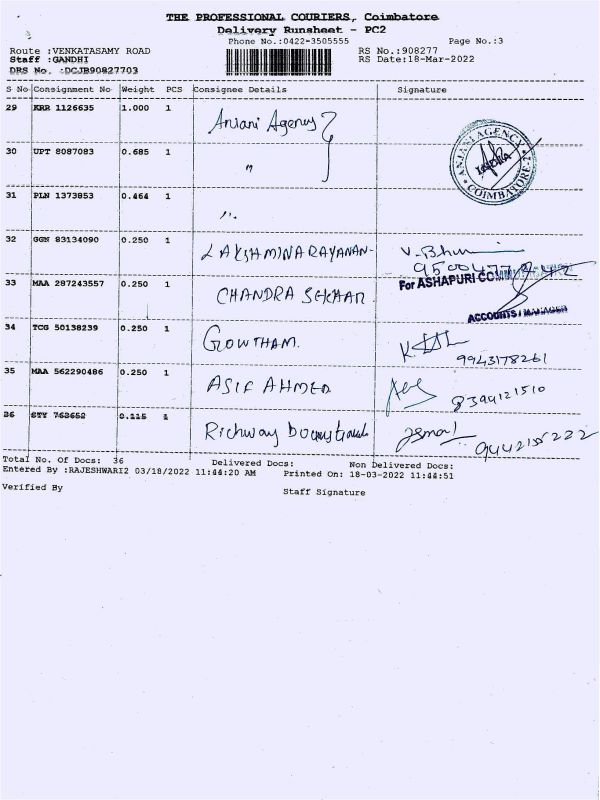 THE PROFESSIONAL COURIERS, Coimbatore
Delivery Runsheet - PC2
Phone No.:0422-3505555 Page No.:3
Route :VENKATASAMY ROAD RS No.:908277
Staff :GANDHI RS Date:18-Mar-2022
DRS No. :DCJB90827703
S No Consignment No Weight PCS Consignee Details Signature
29 KRR 1126635 1.000 1 Anjani Agency
30 UPT 8087083 0.685 1 "
ANJANI AGENCY
COIMBATORE-1
31 PLN 1373853 0.464 1 "
32 GGN 83134090 0.250 1 LAKSHMINARAYANAN
33 MAA 287243557 0.250 1 CHANDRA SEKHAR
For ASHAPURI COMMUNICATION
ACCOUNTS / MANAGER
34 TCG 50138239 0.250 1 GOWTHAM.
9943178261
35 MAA 562290486 0.250 1 ASIF AHMED
8394121510
36 STY 763652 0.115 1 Richway
Total No. Of Docs: 36 Delivered Docs: Non Delivered Docs:
Entered By :RAJESHWARI2 03/18/2022 11:44:20 AM Printed On: 18-03-2022 11:44:51
Verified By Staff Signature